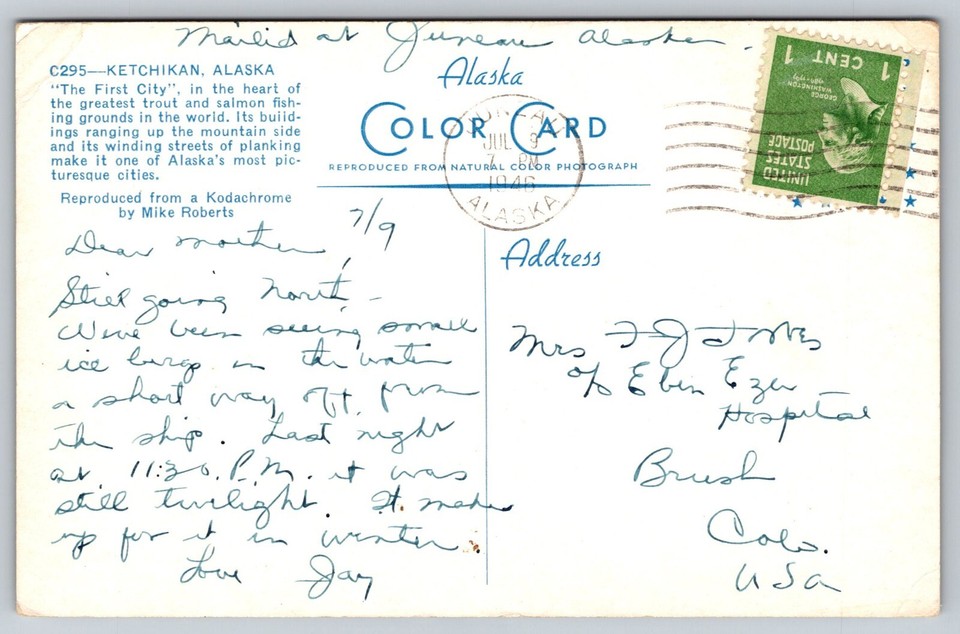 Mailed at Juneau Alaska.
C295—KETCHIKAN, ALASKA
"The First City", in the heart of
the greatest trout and salmon fish-
ing grounds in the world. Its build-
ings ranging up the mountain side
and its winding streets of planking
make it one of Alaska's most pic-
turesque cities.
Reproduced from a Kodachrome
by Mike Roberts
Alaska
COLOR CARD
REPRODUCED FROM NATURAL COLOR PHOTOGRAPH
JUNEAU
JUL 9
7 PM
1946
ALASKA
UNITED
STATES
POSTAGE
GEORGE
WASHINGTON
1 CENT 1
7/9
Dear Mother,
Still going North -
We've been seeing small
ice bergs in the water
a short way off from
the ship. Last night
at 11:30 P.M. it was
still twilight. It makes
up for it in winter.
Love Jay
Address
Mrs F J
c/o Eben Ezer
Hospital
Brush
Colo.
USA